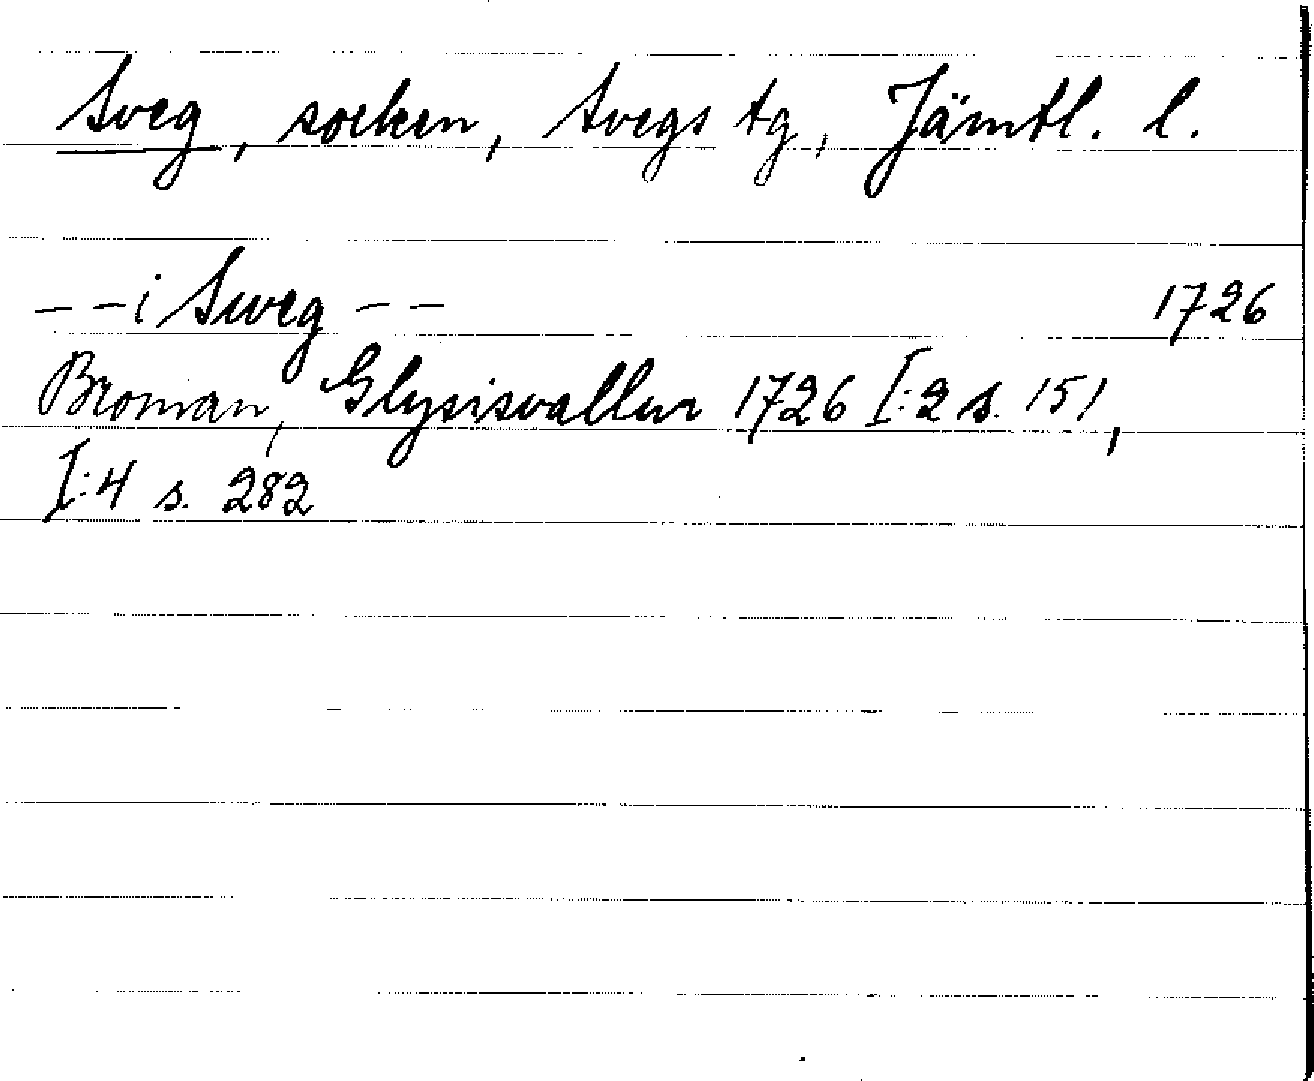 Sveg, socken, Svegs tg, Jämtl. l.
– – i Sweg – –
1726
Broman, Glysisvallur 1726 I:2 s. 151,
I:4 s. 282